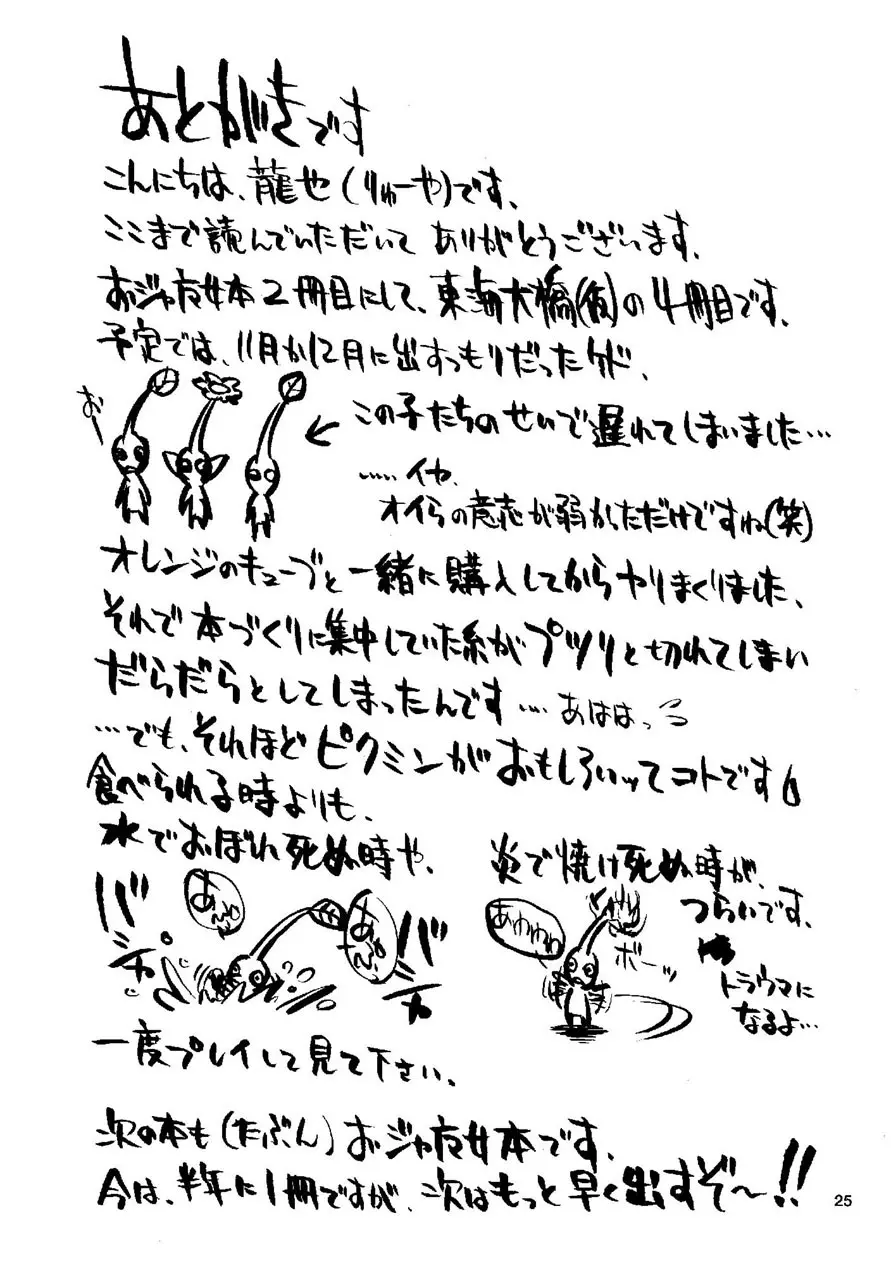 あとがきです
こんにちは、龍也(りゅーや)です、
ここまで読んでいただいて ありがとうございます、
おジャ魔女本2冊目にして、東海大橋(仮)の4冊目です、
予定では、11月か12月に出すつもりだったケド、
おー
← この子たちのせいで遅れてしまいました…
……イヤ、
オイらの意志が弱かっただけですね(笑)
オレンジのキューブと一緒に購入してからやりまくりました、
それで本づくりに集中していた糸がプツリと切れてしまい
だらだらとしてしまったんです…. あははっ
…でも、それほどピクミンがおもしろいッてコトです
食べられる時よりも、
水でおぼれ死ぬ時や、
炎で焼け死ぬ時が、
つらいです、
バシャ
あぷ
あぷ
バシャ
あわわわ
ボーッ
トラウマに
なるよ…
一度プレイして見て下さい、
次の本も(たぶん)おジャ魔女本です、
今は、半年に1冊ですが、次はもっと早く出すぞ〜!!
25